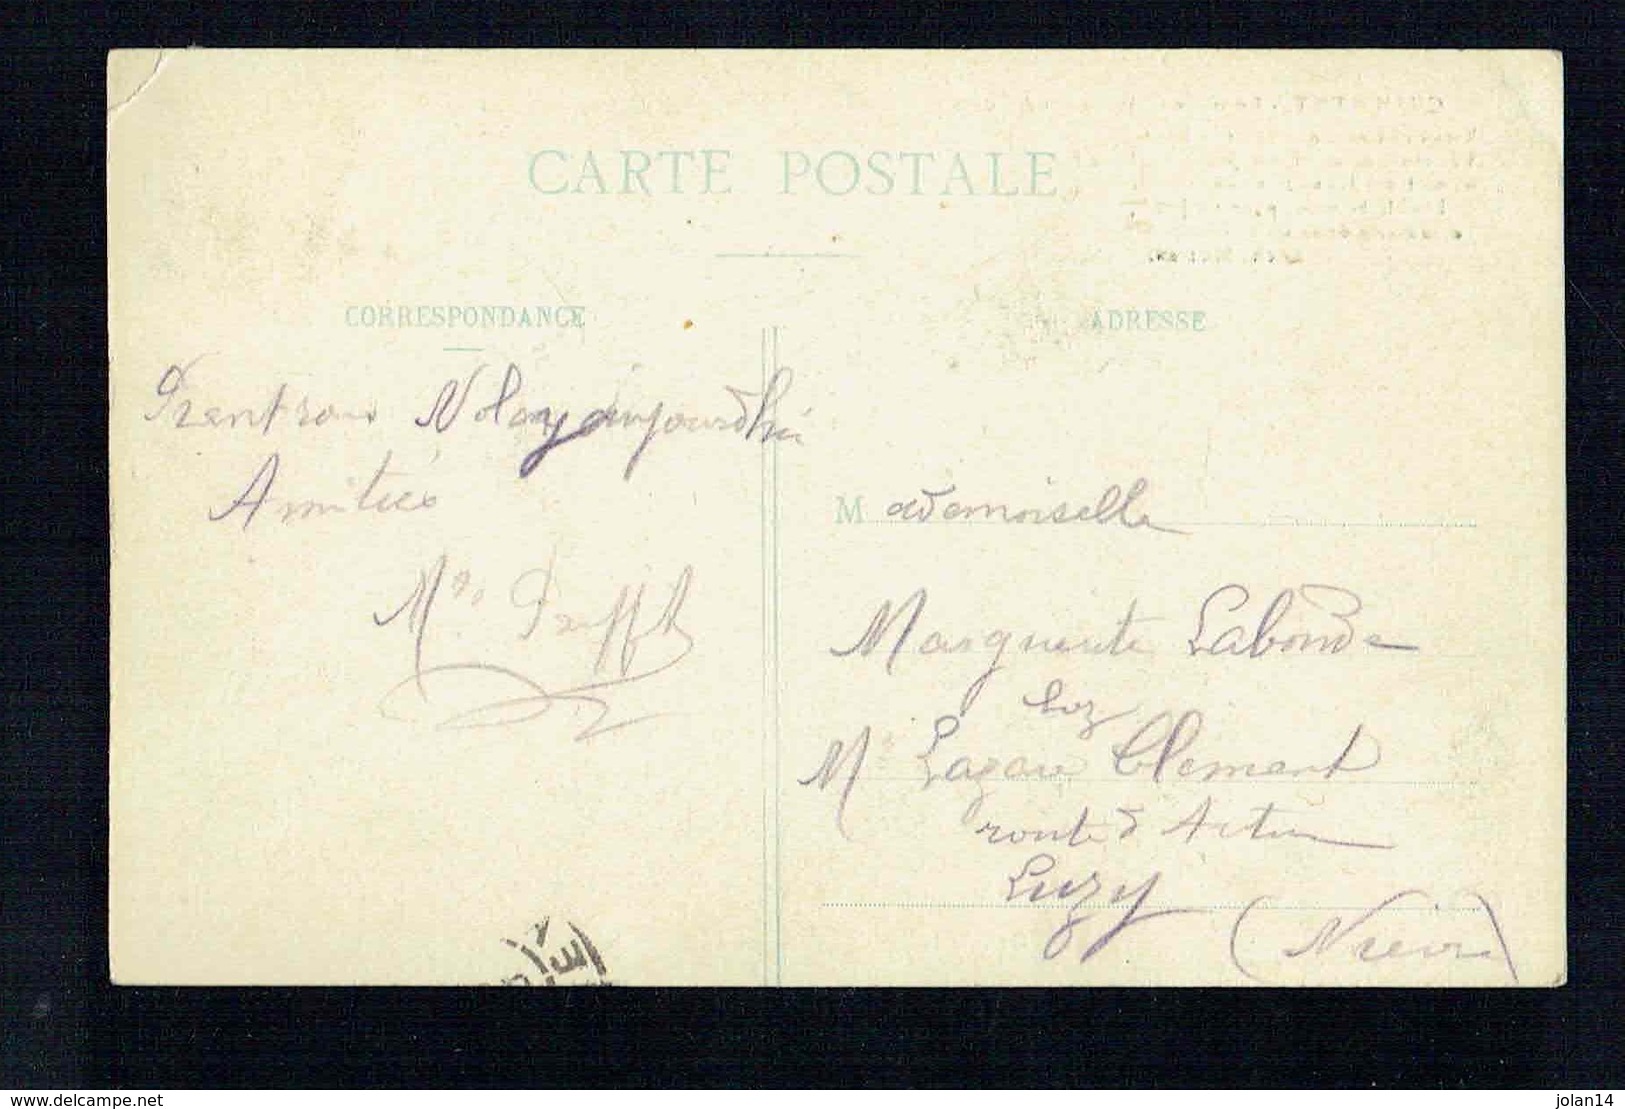 CARTE POSTALE
CORRESPONDANCE
ADRESSE
Nolay aujourdhui
Amitiés
Mademoiselle
Marguerite Labonde
chez
Mr Lazare Clement
route d'Autun
Luzy
(Nièvre)
www.delcampe.net
jolan14